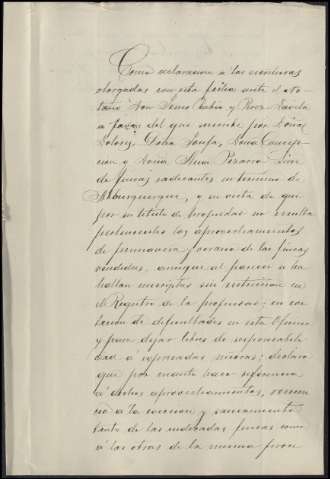 Como aclaracion a las escrituras
otorgadas con esta fecha ante el No-
tario Don Pedro Rubio y Perez Davila
a favor del que suscribe por Doña
Dolores, Doña Josefa, Doña Concep-
cion y Doña Ana Pizarro
de fincas radicantes en termino de
Alburquerque, y en vista de que
por su titulo de propiedad no resulta
pertenecerles los aprovechamientos
de primavera y verano de las fincas
vendidas, aunque al parecer se ha-
llaban inscritas sin restriccion en
el Registro de la propiedad; en evi-
tacion de dificultades en este
y para dejar libres de responsabili-
dad a espresadas Señoras; declaro
que por cuanto hace referencia
a dichos aprovechamientos, renun-
cio a la eviccion y saneamiento
tanto de las indicadas fincas como
a las otras de la misma proce